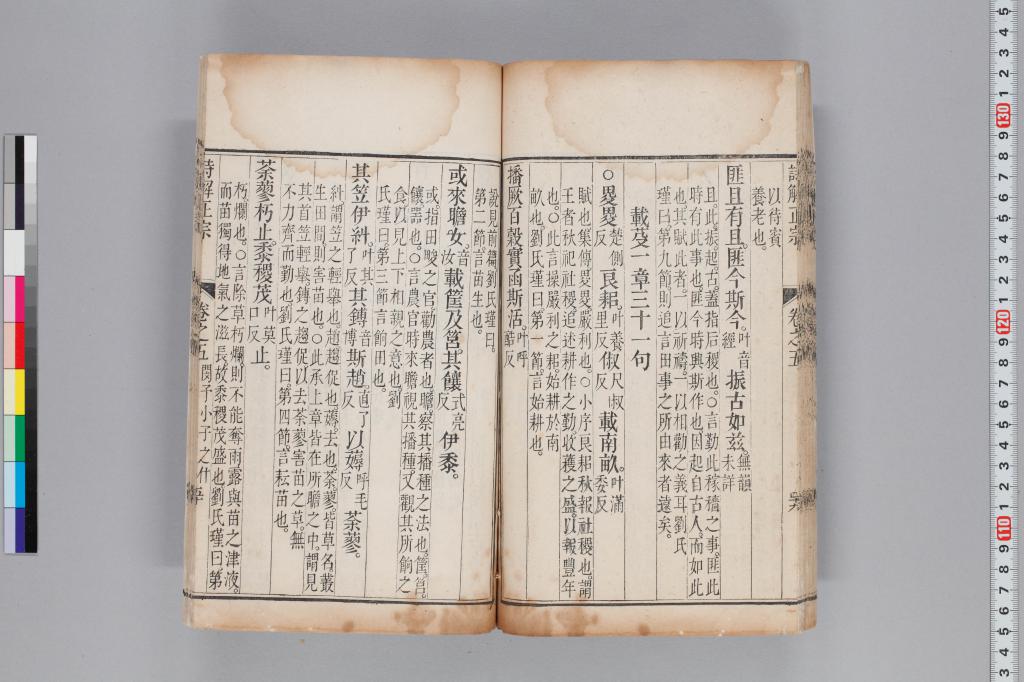 詩解正宗 卷之五
以待賓
養老也。
匪且有且。匪今斯今。叶音經振古如茲。無韻未詳
且。此。振。起。古。蓋指后稷也。○言勤此稼穡之事。匪此
時有此事也。匪今時興斯作也。因起自古人。而如此
也。其賦此者。一以祈禱。一以相勸之義耳。劉氏
瑾曰。第九節則追言田事之所由來者遠矣。
載芟一章三十一句
○畟畟楚側反良耜叶養里反俶尺叔反載南畝。叶滿委反
賦也。集傳。畟畟。嚴利也。○小序。良耜。秋報社稷也。謂
王者秋祀社稷。追述耕作之勤。收穫之盛。以報豐年
也。○此言操嚴利之耜。始耕於南
畝也。劉氏瑾曰。第一節。言始耕也。
播厥百穀。實函斯活。叶呼酷反
說見前篇。劉氏瑾曰。
第二節。言苗生也。
或來瞻女。音汝載筐及筥。其饟式亮反伊黍。
或指田畯之官勸農者也。瞻。察其播種之法也。筐。筥。
饟器也。○言農官時來瞻視其播種。又觀其所餉之
食。以見上下相親之意也。劉
氏瑾曰。第三節。言餉田也。
其笠伊糾。叶其了反其鎛音博斯趙。直了反以薅呼毛反荼蓼。
糾。謂笠之輕舉也。趙。趨促也。薅。去也。荼蓼。皆草名。叢
生田間則害苗也。○此承上章皆在所瞻之中。謂見
其首笠輕舉鎛之趨促以去荼蓼害苗之草。無
不力齊而勤也。劉氏瑾曰。第四節。言耘苗也。
荼蓼朽止。黍稷茂叶莫口反止。
朽。爛也。○言除草朽爛則不能奪雨露與苗之津液。
而苗獨得地氣之滋長。故黍稷茂盛也。劉氏瑾曰。第
詩解正宗 卷之五 閔子小子之什